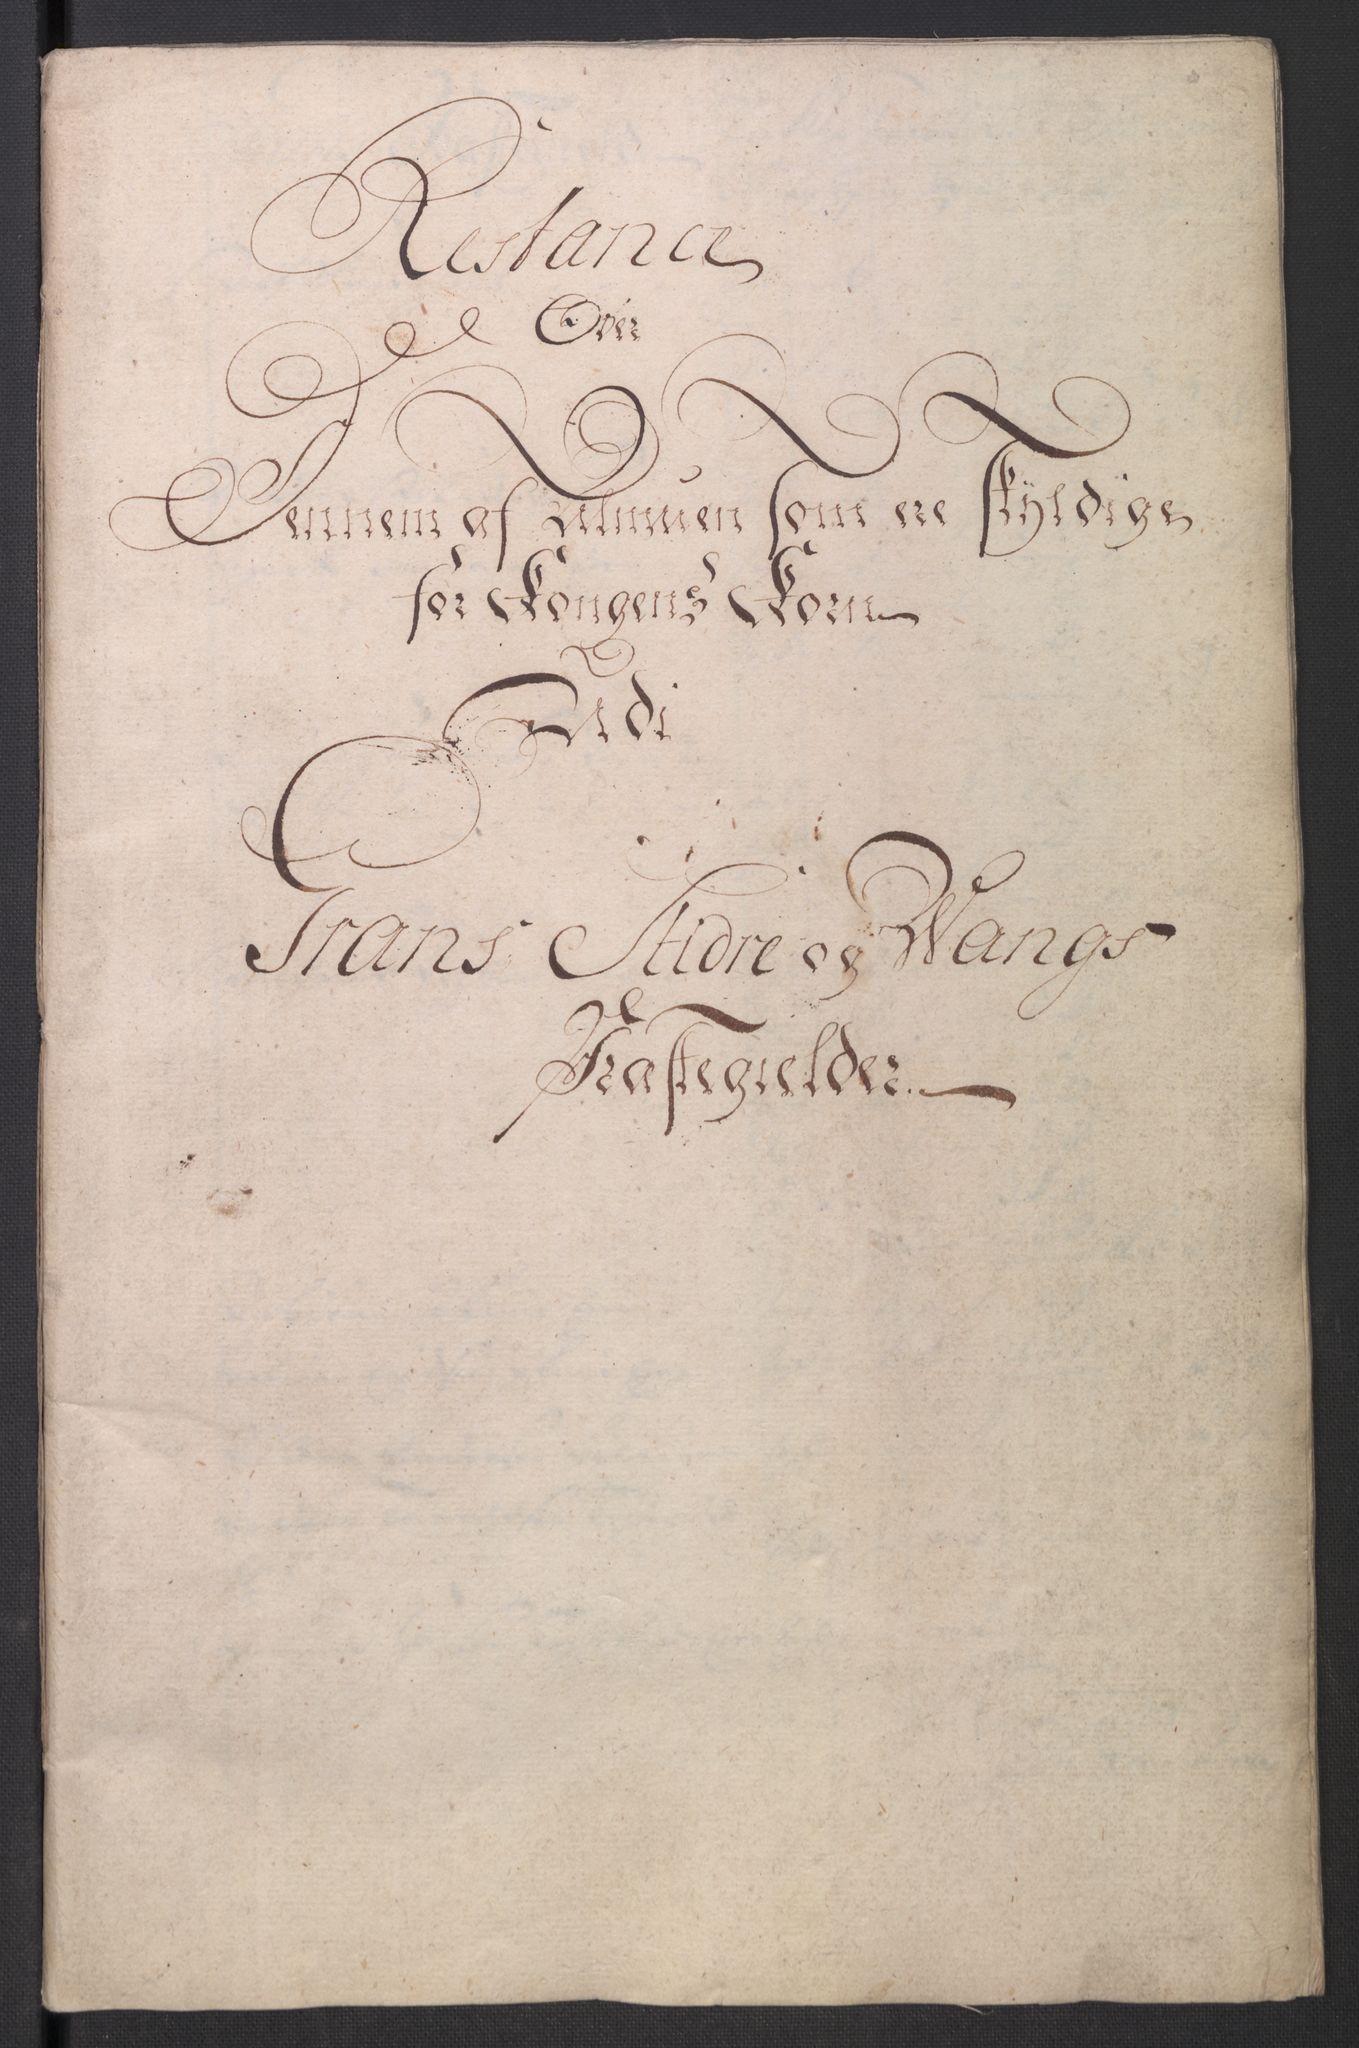 Restance
Over
Dennem af Almuen som ere skÿldige
for Kongens Korn
Udi
Grans Slidre og Wangs
Præstegielder